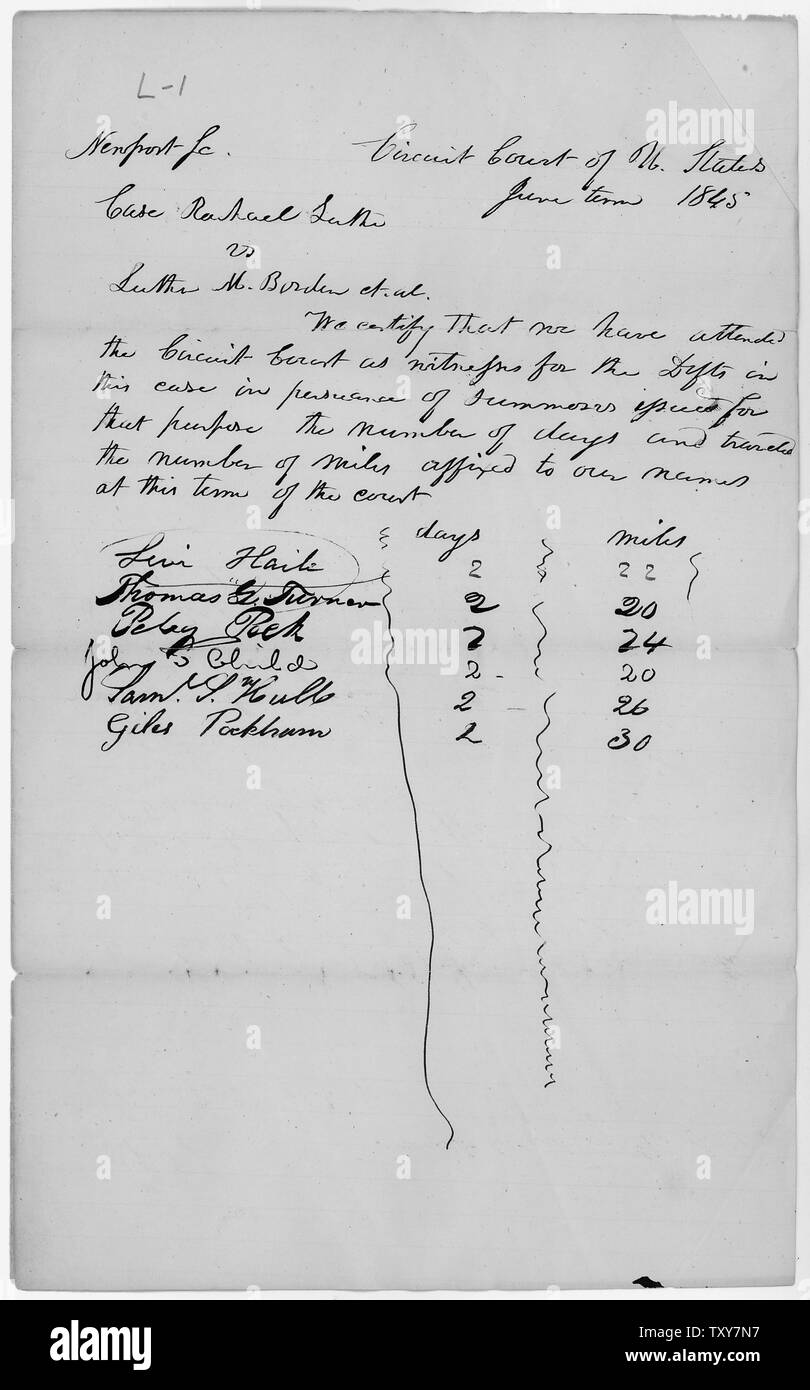 L-1
Newport Sc. Circuit Court of U. States
June term 1845
Case Rachael Luther
vs
Luther M. Borden et. al.
We certify that we have attended
the Circuit Court as witnesses for the Defts in
this case in persuance of summoses issued for
that purpose the number of days and traveled
the number of miles affixed to our names
at this term of the court
days miles
Levi Haile 2 22
Thomas G. Turner 2 20
Peleg Peck 2 24
John B Child 2 - 20
Saml. S. Hull 2 - 26
Giles Peckham 2 30
alamy
a
a alamy
a alamy
a alamy
a a a
alamy
Image ID: TXY7N7
www.alamy.com